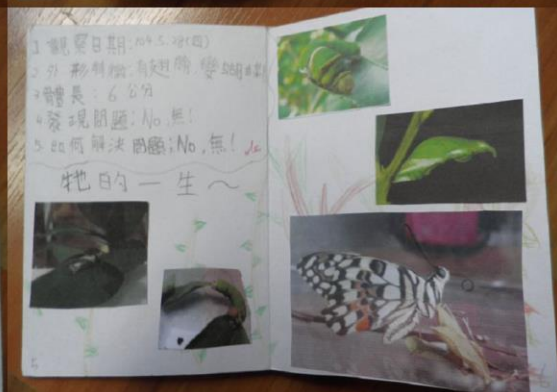 1 觀察日期:104.5.28(四)
2 外形特徵:有翅膀、變蝴蝶
3 體長:6公分
4 發現問題:No,無!
5 如何解決問題:No,無!
牠的一生~